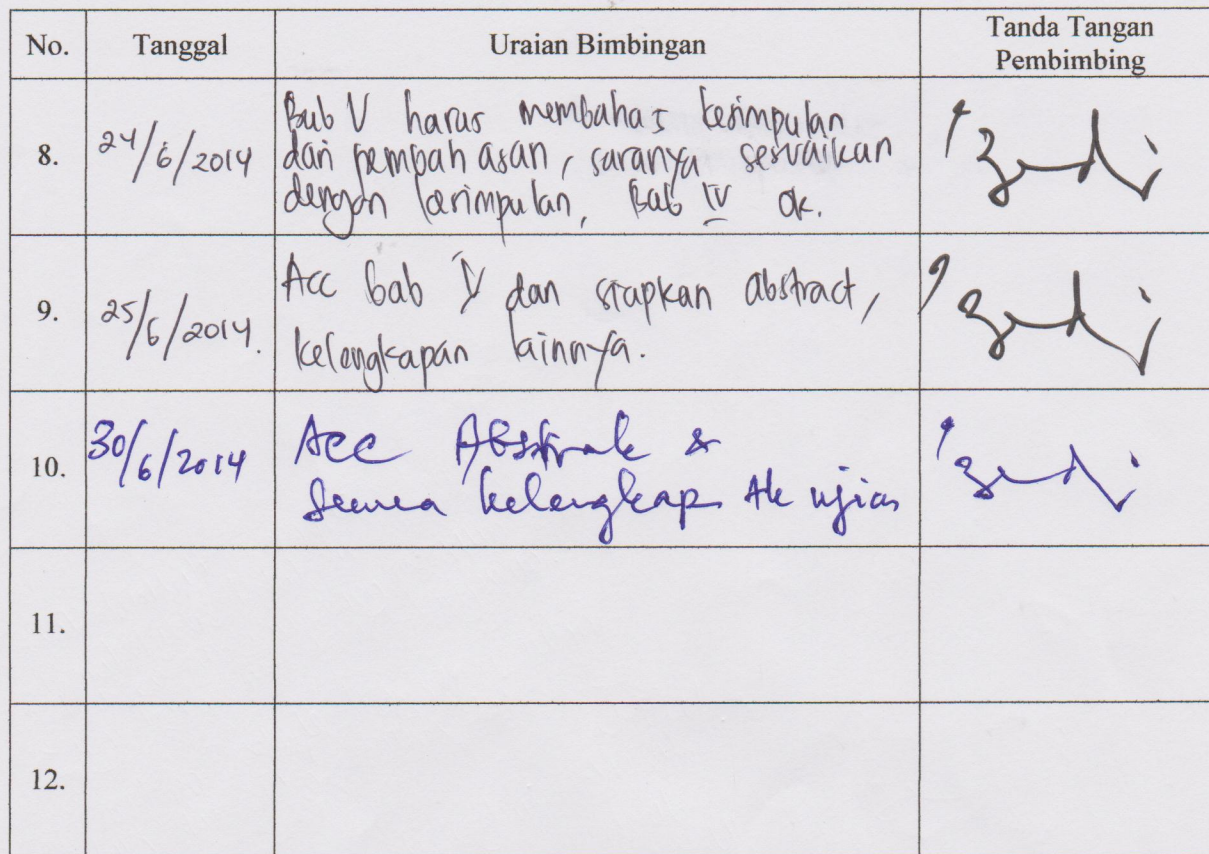 No. Tanggal Uraian Bimbingan Tanda Tangan
Pembimbing
8. 24/6/2014 Bab V harus membahas kesimpulan
dari pempahasan, saranya sesuaikan
dengan kesimpulan, Bab IV ok.
9. 25/6/2014. Acc bab V dan siapkan abstract,
kelengkapan lainnya.
10. 30/6/2014 Acc Abstrak &
semua kelengkap ujian
11.
12.